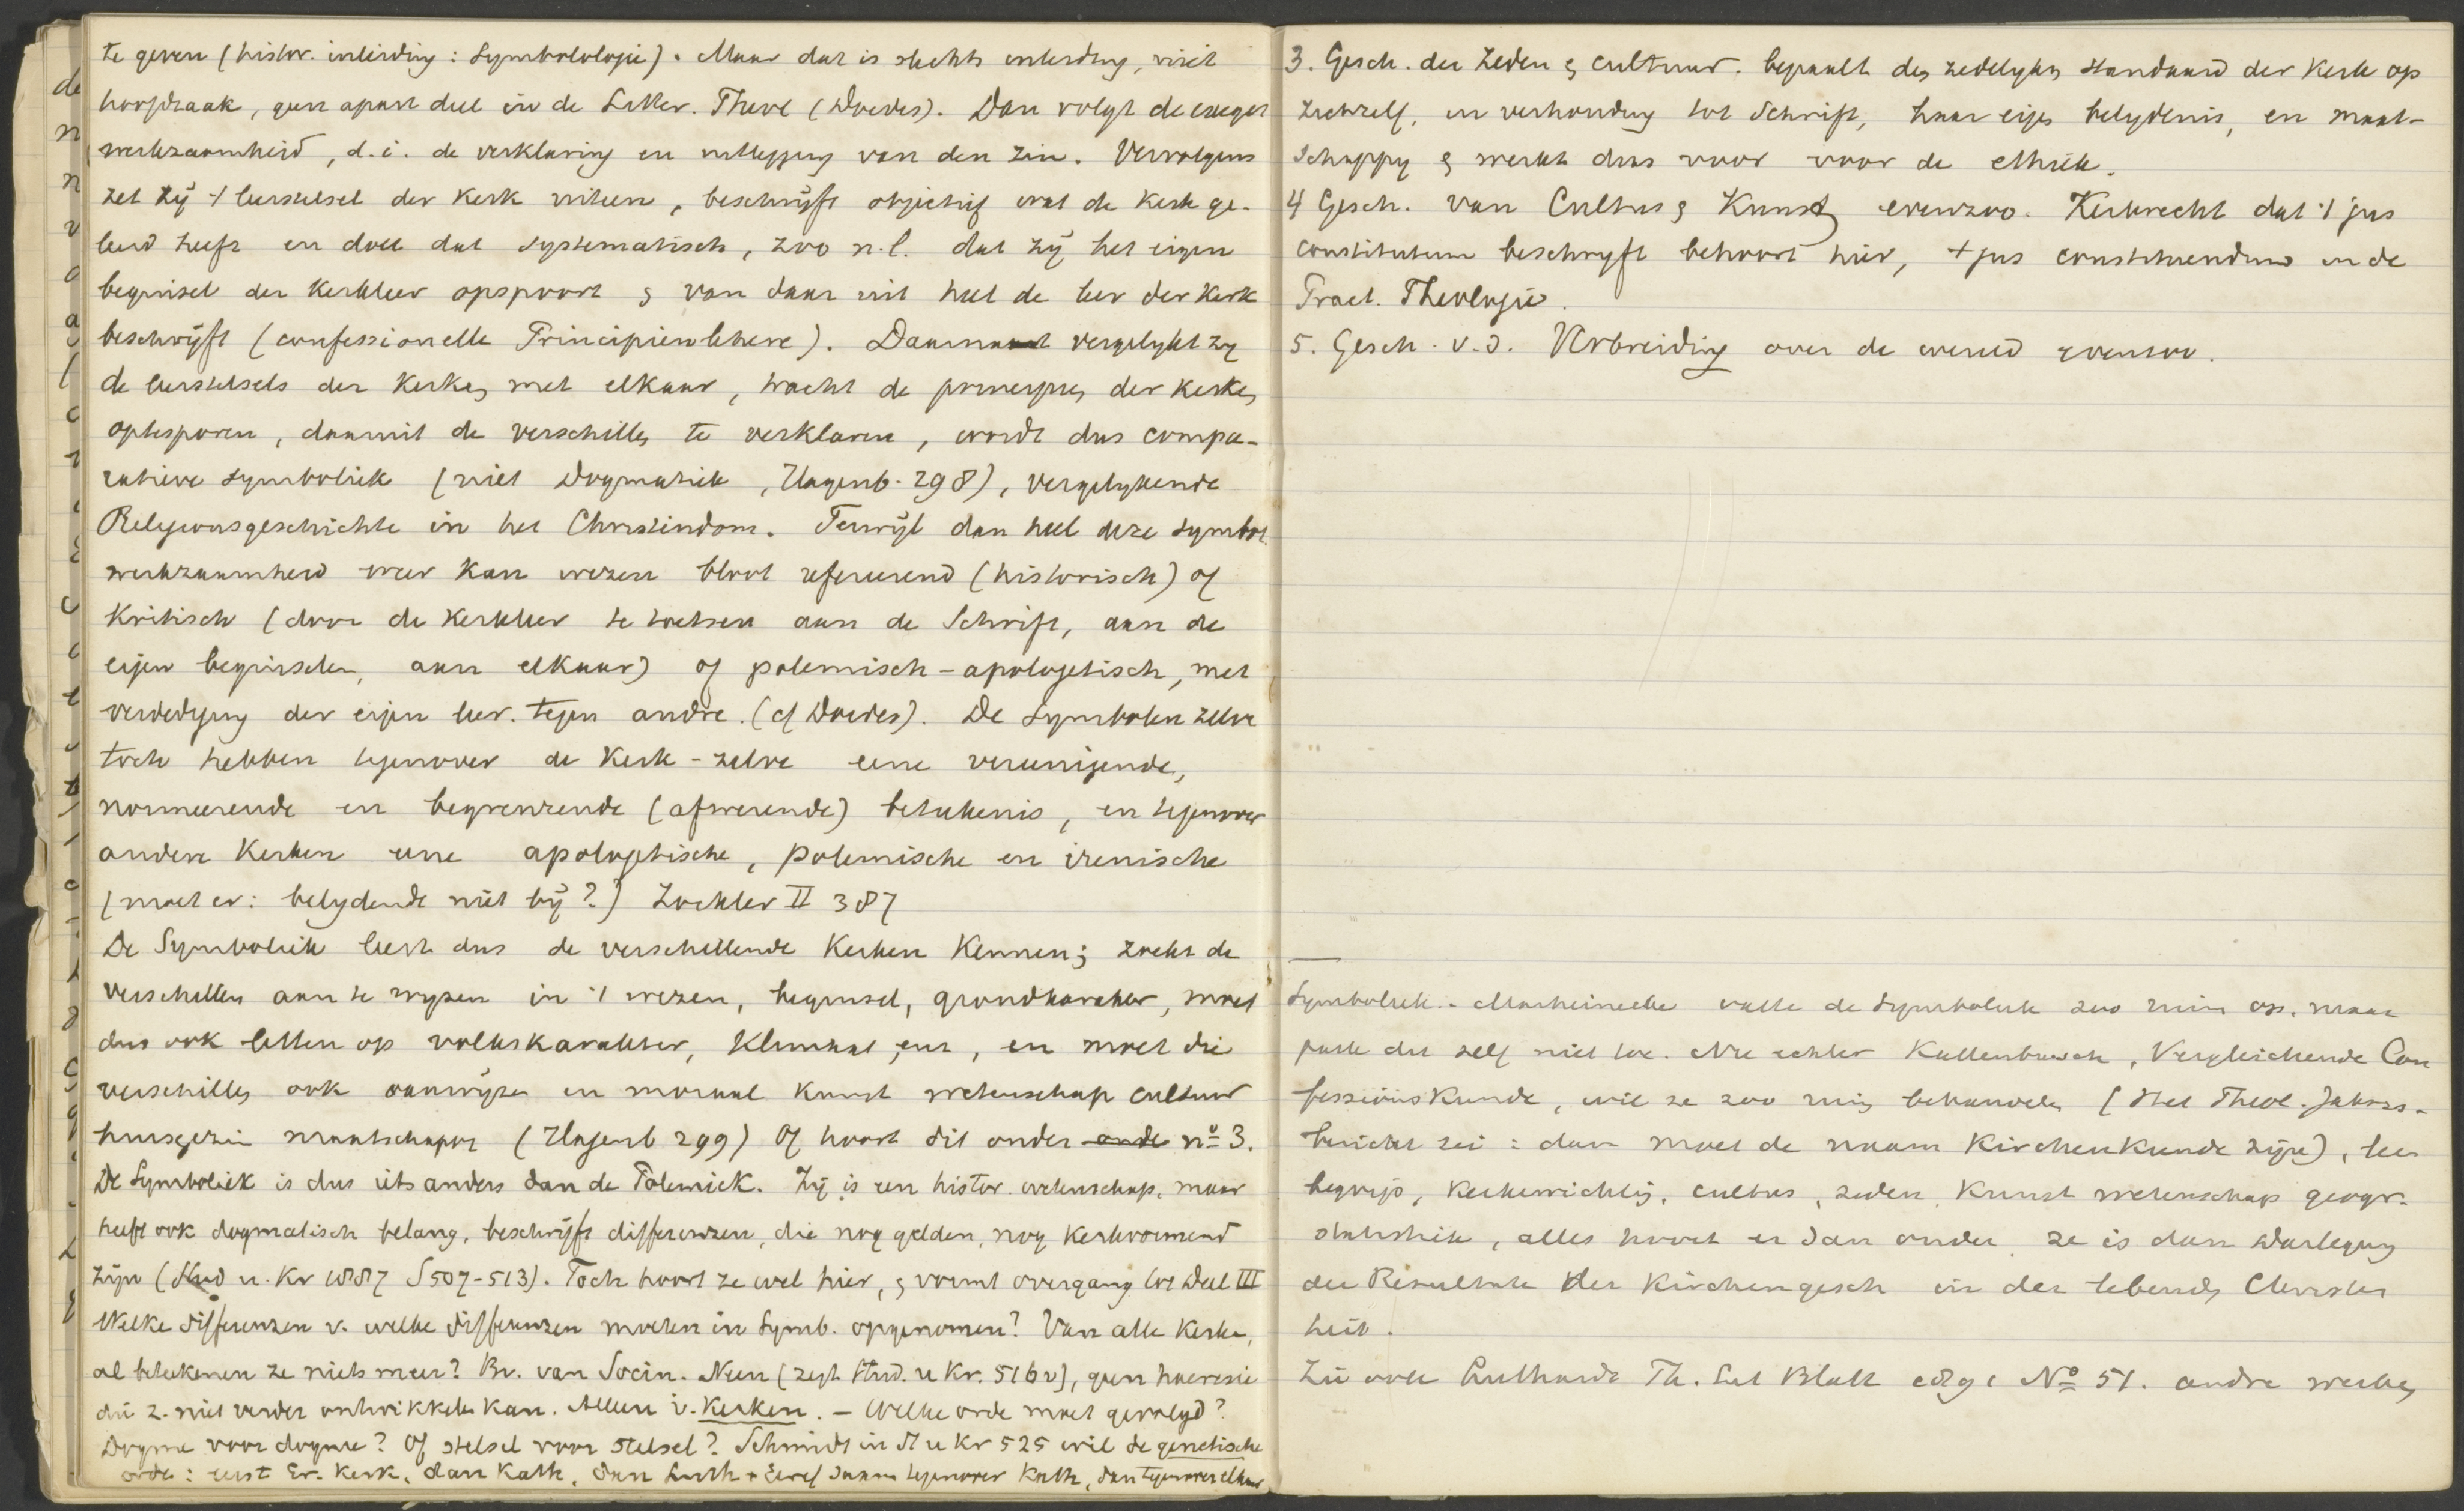 te geven (histor. inleiding: Symbolologie). Maar dat is slechts inleiding, niet
hoofdzaak, geen apart deel in de Litter. Theol (Doedes). Dan volgt de exeget
werkzaamheid, d.i. de verklaring en uitlegging van den zin. Vervolgens
zet zij 't leerstelsel der Kerk uiteen, beschrijft objectief wat de Kerk ge-
leerd heeft en doet dat systematisch, zoo n.l. dat zij het eigen
beginsel der Kerkleer opspoort & van daar uit heel de leer der Kerk
beschrijft (confessionelle Principienlehere). Daarnaast vergelykt zy
de leerstelsels der Kerken met elkaar, tracht de principes der Kerken
optesporen, daaruit de verschillen te verklaren, wordt dus compa-
ratieve symboliek (niet Dogmatiek, Hagenb. 298), vergelykende
Religionsgeschichte in het Christendom. Terwijl dan heel deze symbol.
werkzaamheid weer kan wezen bloot refereerend (historisch) of
kritisch (door de Kerkleer te toetsen aan de Schrift, aan de
eigen beginselen, aan elkaar) of polemisch-apologetisch, met
verdediging der eigen leer. tegen andre. (cf Doedes). De Symbolen zelve
toch hebben tegenover de Kerk-zelve eene vereenigende,
normeerende en begrenzende (afwerende) beteekenis, en tegenover
andere Kerken eene apologetische, polemische en irenische
(moet er: belydende niet bij?) Zöckler II 387
De Symboliek leert dus de verschillende Kerken Kennen; zoekt de
verschillen aan te wyzen in 't wezen, beginsel, grondkarakter, moet
dus ook letten op volkskarakter, Klimaat, enz, en moet die
verschillen ook aanwijzen in moraal kunst wetenschap cultuur
huisgezin maatschappy (Hagenb 299) Of hoort dit onder onder nº 3.
De Symboliek is dus iets anders dan de Polemiek. Zij is een histor. wetenschap, maar
heeft ook dogmatisch belang, beschrijft differenzen, die nog gelden, nog Kerkvormend
zijn (Stud u. Kr 1887 S 507-513). Toch hoort ze wel hier, & vormt overgang tot Deel III
Welke differenzen v. welke differenzen moeten in Symb. opgenomen? Van alle Kerken,
al beteekenen ze niets meer? Bv. van Socin. Neen (zegt Stud. u Kr. 516v), geen haeresie
die z. niet verder ontwikkelen kan. Alleen v. Kerken. - Welke orde moet gevolgd?
Dogme voor dogme? Of stelsel voor stelsel? Schmidt in St u Kr 525 wil de genetische
orde: eerst Gr. Kerk, dan Kath, dan Luth + Geref saam tegenover Kath, dan tegenover elkaar
3. Gesch. der Zeden & cultuur. bepaalt den zedelyken standaard der Kerk op
zichzelf, in verhouding tot Schrift, haar eigen belydenis, en maat-
schappy & werkt dus voor voor de ethiek.
4 Gesch. van Cultus & Kunst evenzoo. Kerkrecht dat 't jus
constitutum beschryft behoort hier, 't jus constituendum in de
Pract. Theologie.
5. Gesch. v.d. Verbreiding over de wereld evenzoo.
Symboliek. Marheinecke vatte de Symboliek zoo ruim op, maar
paste dit zelf niet toe. Nu echter Kattenbusch, Vergleichende Con
fessionskunde, wil ze zoo ruim behandelen (Het Theol. Jahres-
bericht zei: dan moet de naam Kirchenkunde zijn), leer
begrip, Kerkinrichting, cultus, zeden, Kunst wetenschap geogr.
statistiek, alles hoort er dan onder. ze is dan Darlegung
der Resultate der Kirchengesch in der lebenden Christen
heit.
Zie ook Luthardt Th. Lit Blatt 1891 Nº 51. andre werken